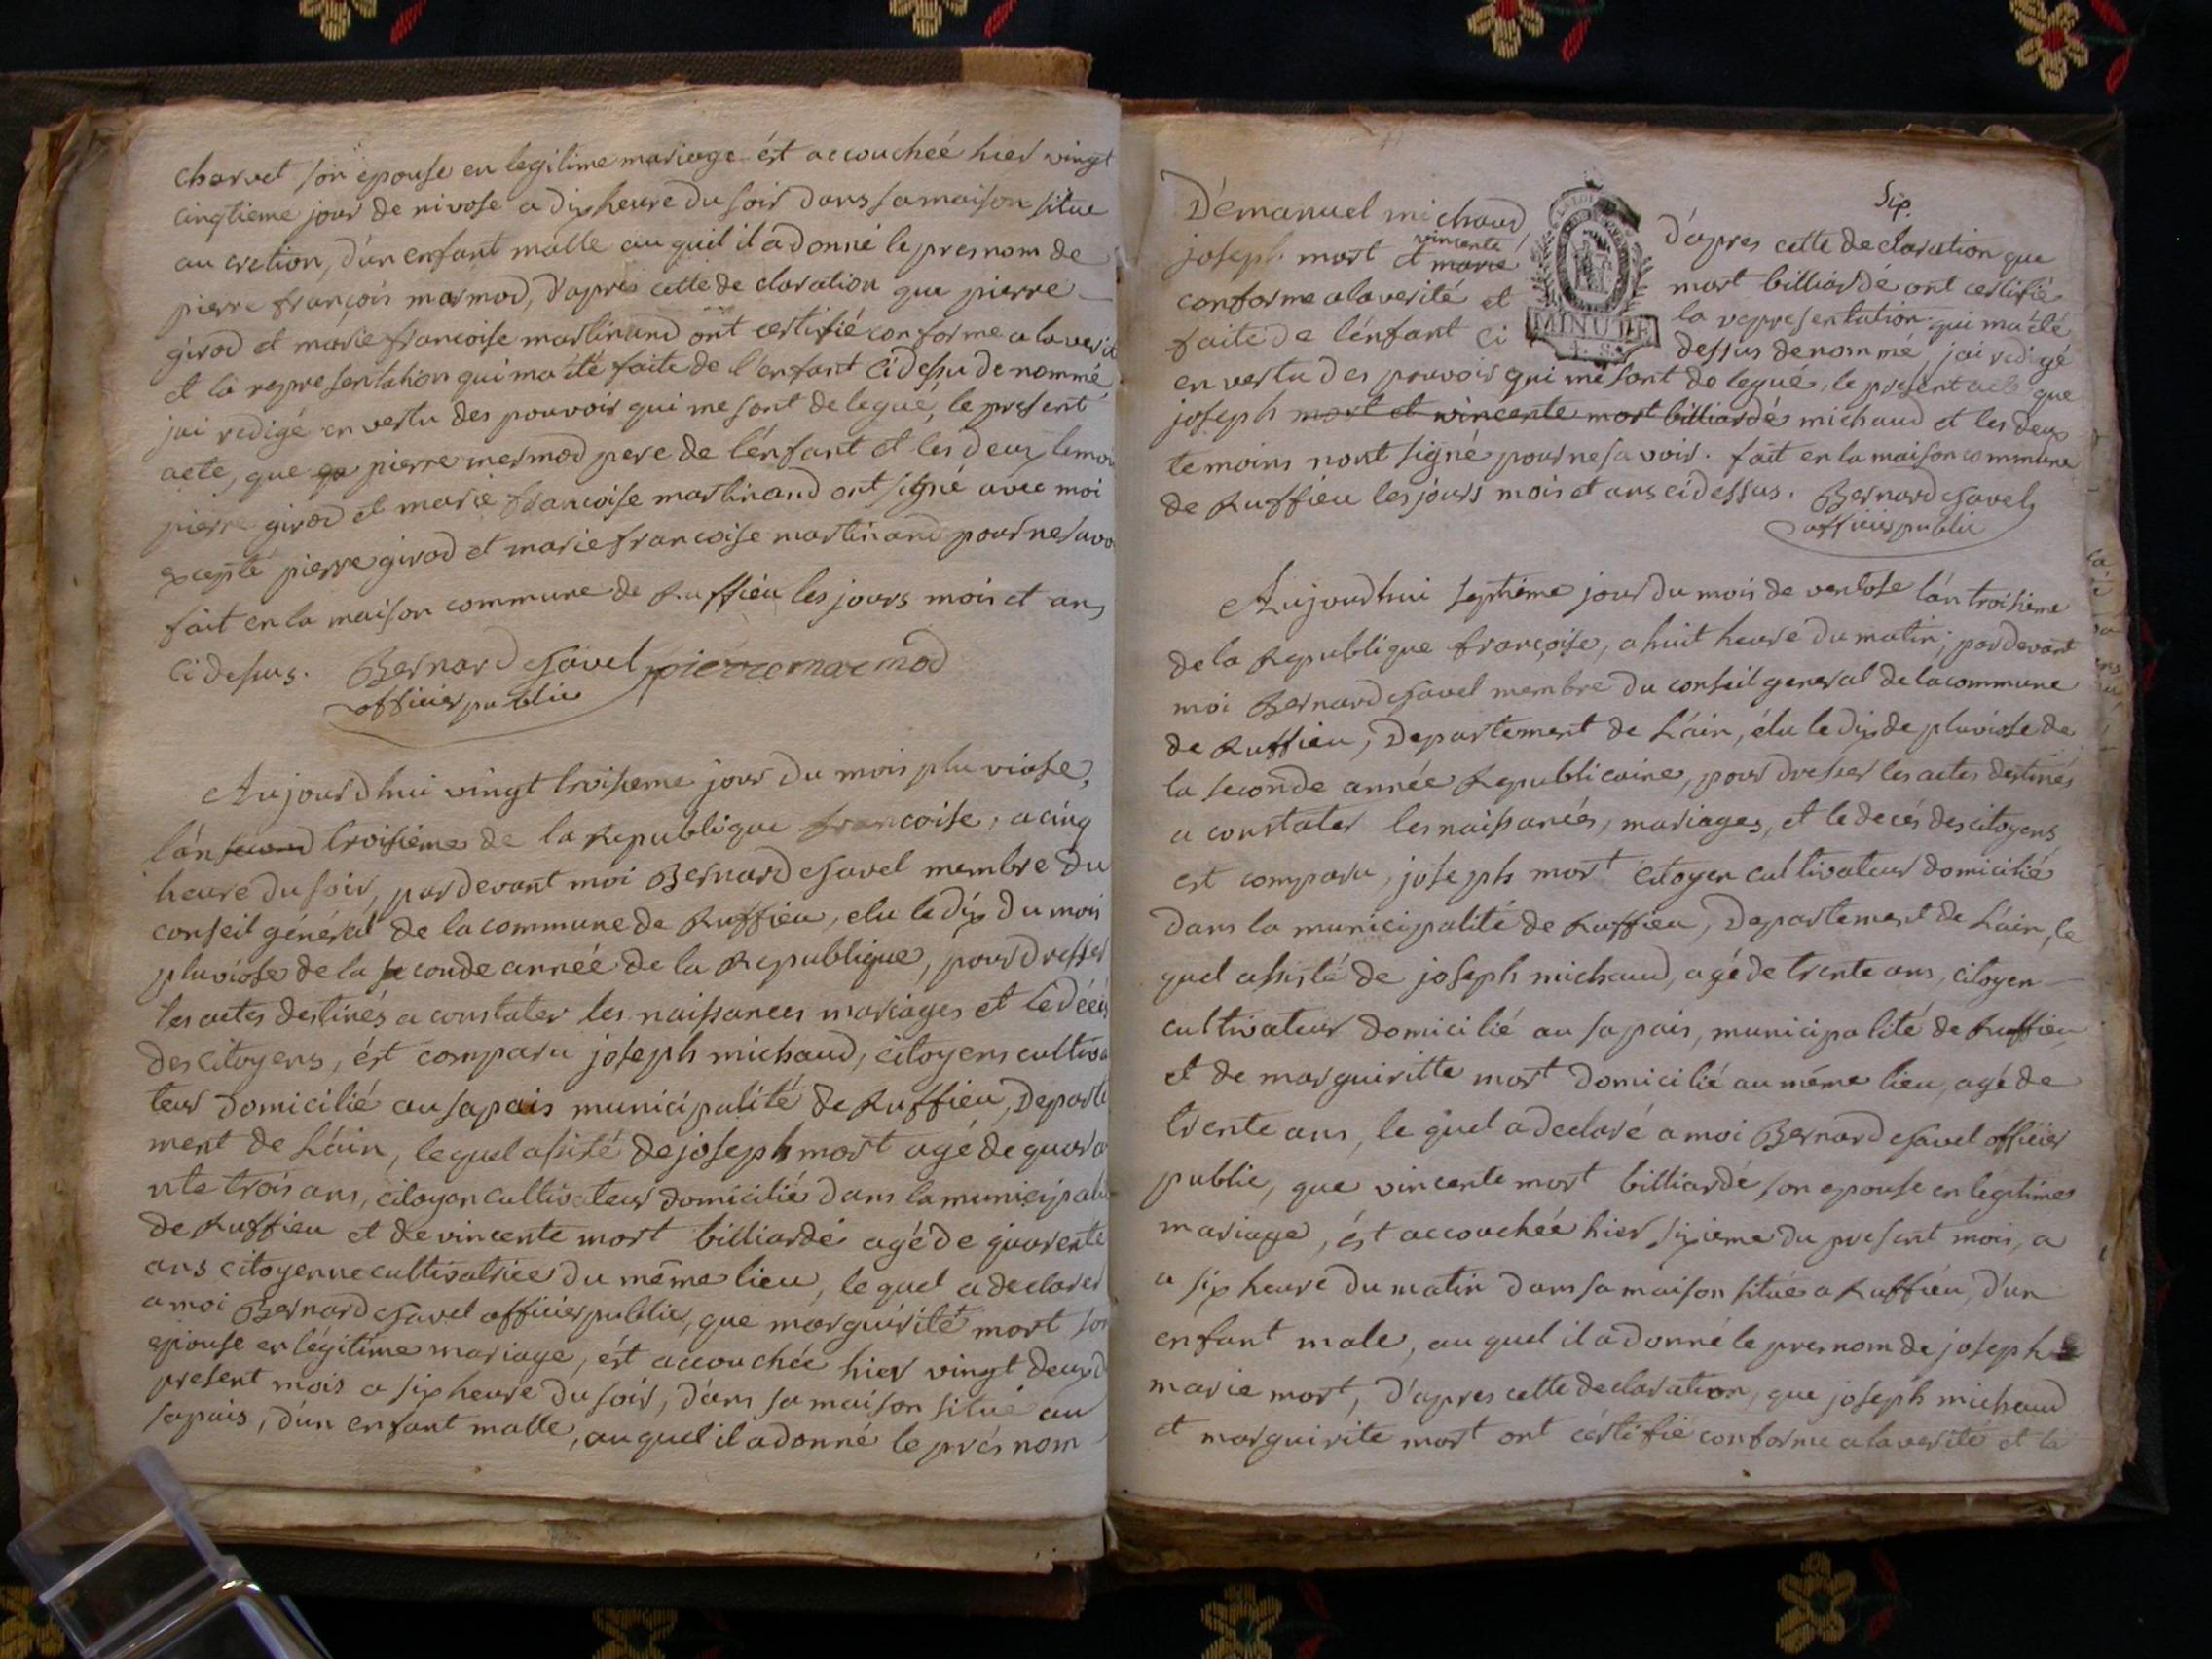 charvet son epouse en legitime mariage ést accouchéé hier vingt
cinqtieme jour de nivose a dix heure du soir dans sa maison situe
au cretion, d'un enfant malle au quel il a donné le presnom de
pierre françois marmod, d'apres cette declaration que pierre
girod et márie francoise martinand ont certifié conforme a la verit
et la representation qui ma été faite de l'enfant ci dessu denommé
jai redigé en vertu des pouvoir qui me sont delegué, le present
acte, que pierre mermod pere de l'énfant et les deux temoi
pierre girod et marie francoise martinand ont signé avec moi
excepté pierre girod et marie francoise martinand pour ne savo
fait en la maison commune de Ruffieu les jours mois et ans
ci dessus. Bernard savel pierre marmod
officier public
Aujourdhui vingt troisieme jour du mois pluviose,
l'án second troisieme de la Republique francoise, a cinq
heure du soir, par devant moi Bernard savel membre du
conseil général de la commune de Ruffieu, elu le dix du mois
pluviose de la seconde année de la Republique, pour dresser
les actes destinés a constater les naissances mariages et le décés
des citoyens, ést comparu joseph michaud, citoyens cultiva
teur domicilié au sapais municipalité de Ruffieu, departe
ment de L'áin, lequel assisté de joseph mort agé de quara
nte trois ans, citoyen cultivateur domicilié dans la municipali
de Ruffieu et de vincente mort billiardé agé de quarente
ans citoyenne cultivatrice du même lieu, le quel a declarer
a moi Bernard savel officier public, que márguirité mort son
epouse en légitime mariage, ést accouchéé hier vingt deux d
present mois a six heure du soir, dans sa maison situé au
sapais, d'un enfant malle, au quel il a donné le présnom
Six.
D'émanuel michaud, d'apres cette declaration que
joseph mort et marie vincente mort billiardé ont certifié
conforme a la verité et la representation qui ma été
faite de l'énfant ci dessus denommé, jai redigé
en vertu des pouvoir qui me sont delegué, le present acte que
joseph mort et vincente mort billiardé michaud et les deux
temoins n'ont signé pour ne savoir. fait en la maison commune
de Ruffieu les jours mois et ans ci dessus. Bernard savel
officier public
MINUTE
Aujourdhui septiéme jour du mois de ventose l'án troisieme
de la Republique françoise, a huit heure du matin, par devant
moi Bernard savel membre du conseil general de la commune
de Ruffieu, Departement de L'áin, élu le dix de pluviose de
la seconde année Republicaine, pour dresser les actes destinés
a constater les naissancés, mariages, et le decés des citoyens
est comparu, joseph mort citoyen cultivateur domicilié
dans la municipalité de Ruffieu, Departement de L'áin, le
quel assisté de joseph michaud, agé de trente ans, citoyen
cultivateur domicilié au sapais, municipalité de Ruffieu
et de marguiritte mort domicilié au même lieu, agé de
trente ans, le quel a declaré a moi Bernard savel officier
public, que vincente mort billiardé son epouse en légitime
mariage, ést accouchéé hier sixieme du present mois, a
a six heure du matin dans sa maison située a Ruffieu, d'un
enfant male, au quel il a donné le presnom de joseph
marie mort, d'apres cette declaration, que joseph michaud
et marguirite mort ont certifié conforme a la verité et la